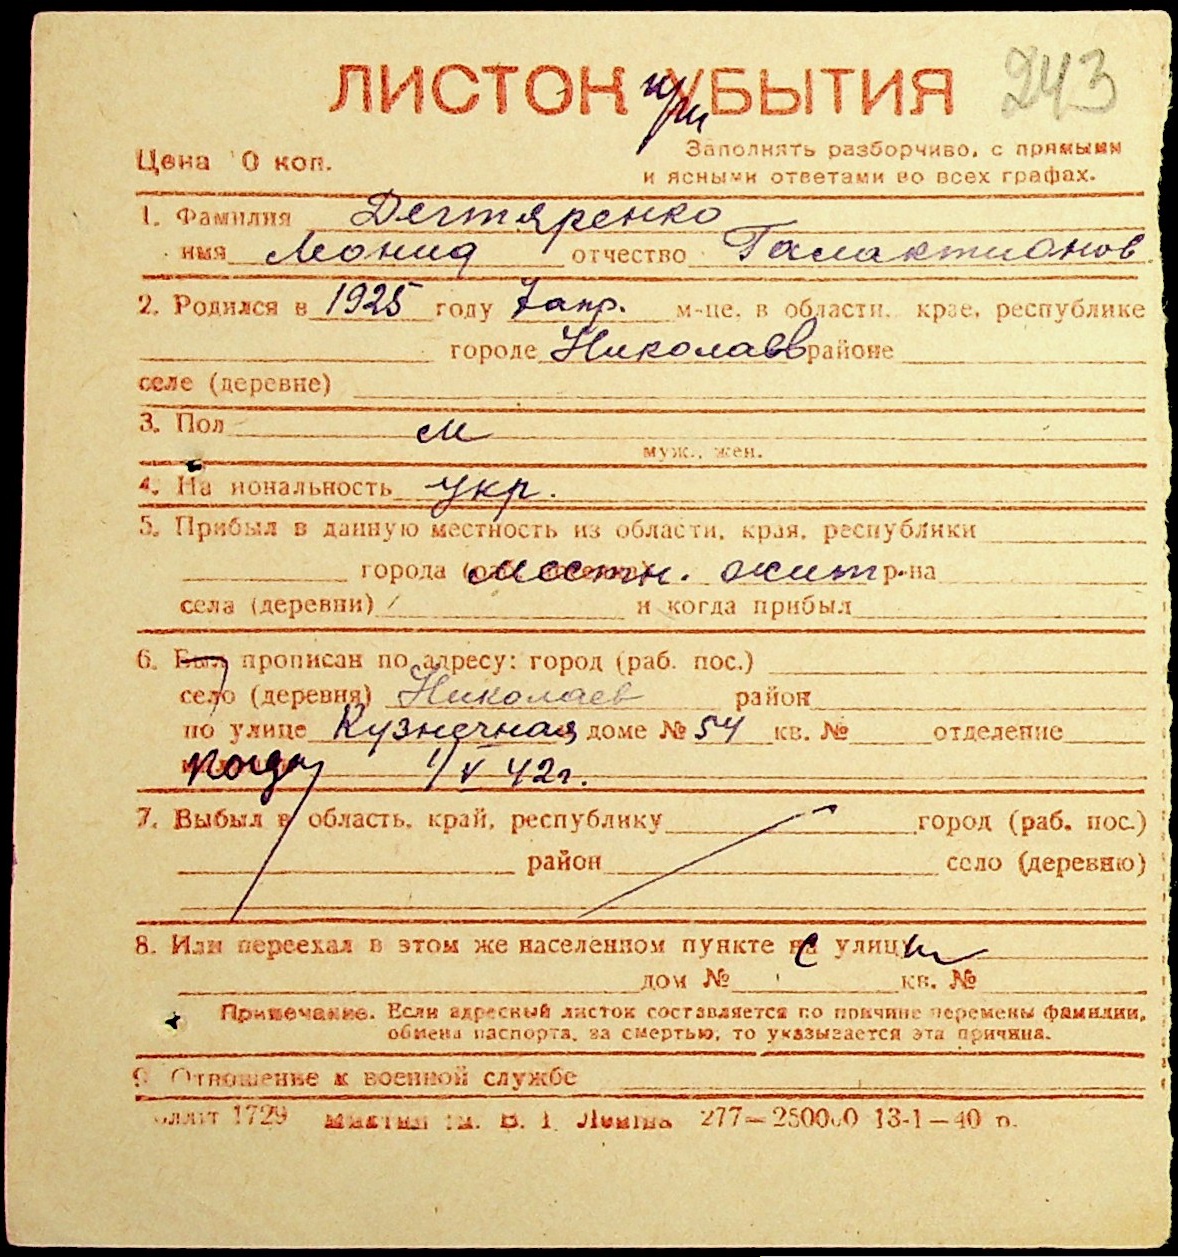 243
ЛИСТОК при УБЫТИЯ
Цена 0 коп.
Заполнять разборчиво, с прямыми
и ясными ответами во всех графах.
1. Фамилия Дегтяренко
имя Леонид отчество Галактионов
2. Родился в 1925 году 7 апр. м-це, в области, крае, республике
городе Николаев районе
селе (деревне)
3. Пол м
муж., жен.
4. На иональность укр.
5. Прибыл в данную местность из области, края, республики
города местн. жит р-на
села (деревни) и когда прибыл
6. Был прописан по адресу: город (раб. пос.)
село (деревня) Николаев район
по улице Кузнечная доме № 54 кв. № отделение
когда 1/V 42г.
7. Выбыл в область, край, республику город (раб. пос.)
район село (деревню)
8. Или переехал в этом же населенном пункте с улицы
дом № кв. №
Примечание. Если адресный листок составляется по причине перемены фамилии,
обмена паспорта, за смертью, то указывается эта причина.
9. Отношенье к военной службе
1729 им. В. И. Ленина 277—250000 13-1—40 п.